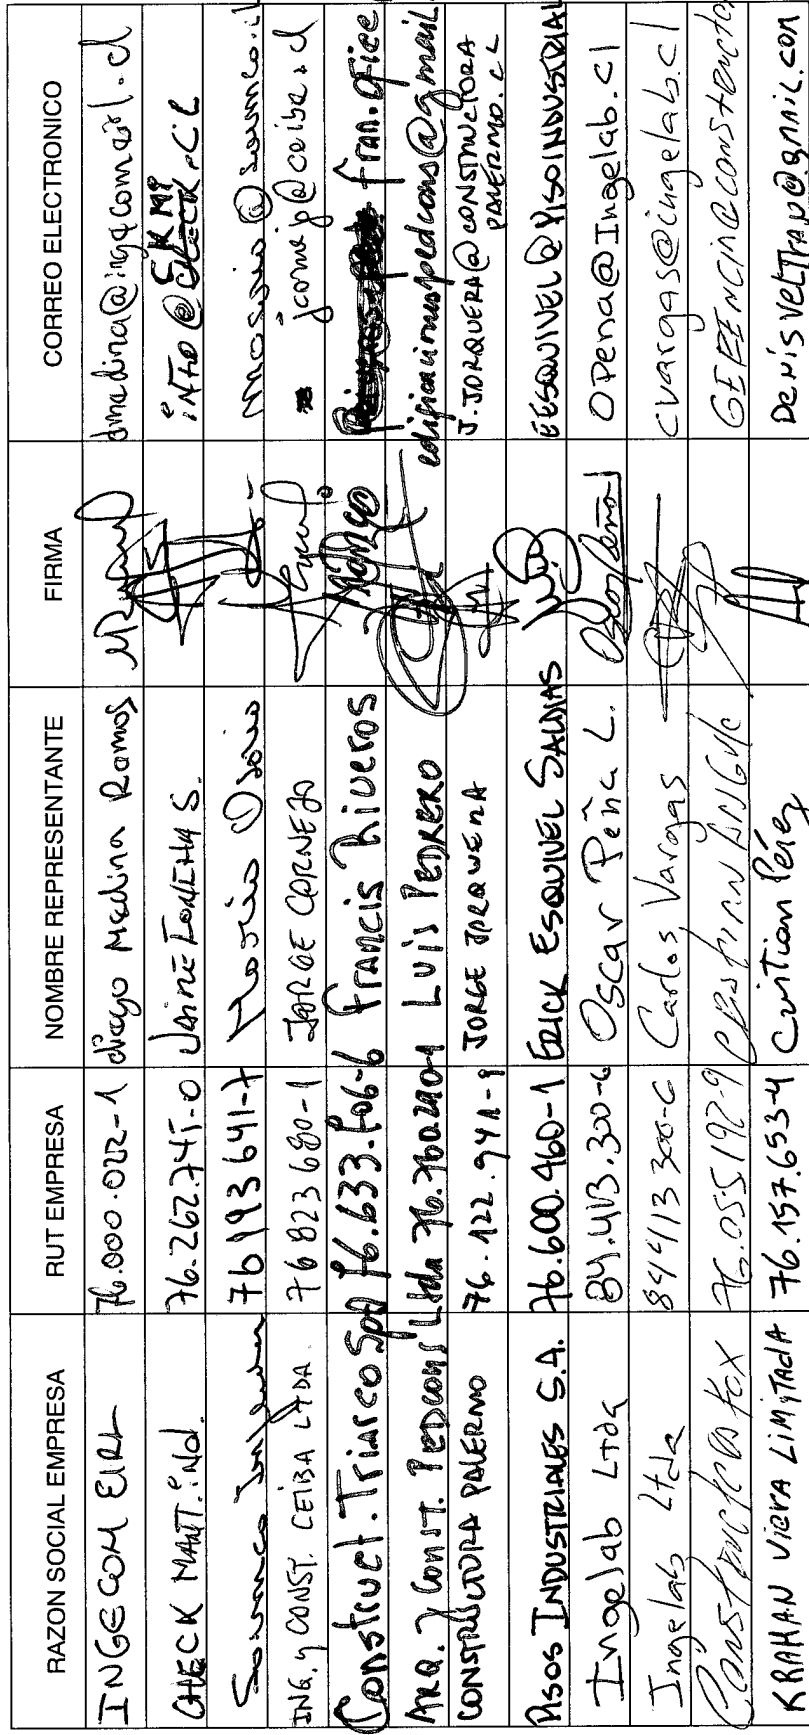 RAZON SOCIAL EMPRESA RUT EMPRESA NOMBRE REPRESENTANTE FIRMA CORREO ELECTRONICO
INGECOM EIRL 76.000.022-1 diego Medina Ramos dmedina@ingecomeirl.cl
CHECK MANT. ind. 76.262.745-0 Jaime info@ .CL
76193641-7 Osorio
ING. y CONST. CEIBA LTDA. 76 823 680-1 JORGE CORNEJO jcornejo@ceiba.cl
Construct. Triarco SpA 76.633.806-6 Francis Riveros fran.ofice
Arq. y Const. Pedcons Ltda LUIS PEDRERO edificacionespedcons@gmail
CONSTRUCTORA PALERMO 76.122.941-9 JORGE JORQUERA J.JORQUERA@CONSTRUCTORA
PALERMO.CL
PISOS INDUSTRIALES S.A. 76.600.460-1 ERICK ESQUIVEL SALDIAS EESQUIVEL@PISOINDUSTRIAL
Ingelab Ltda 84.413.300-6 Oscar Peña L. Oscar Peña L OPena@Ingelab.cl
Ingelab Ltda 84413300-6 Carlos Vargas cvargas@ingelab.cl
Constructora Fox 76.055.192-9 GERENCIA@constructo
KRAMAN VIERA LIMITADA 76.157.653-4 Cristian Pérez